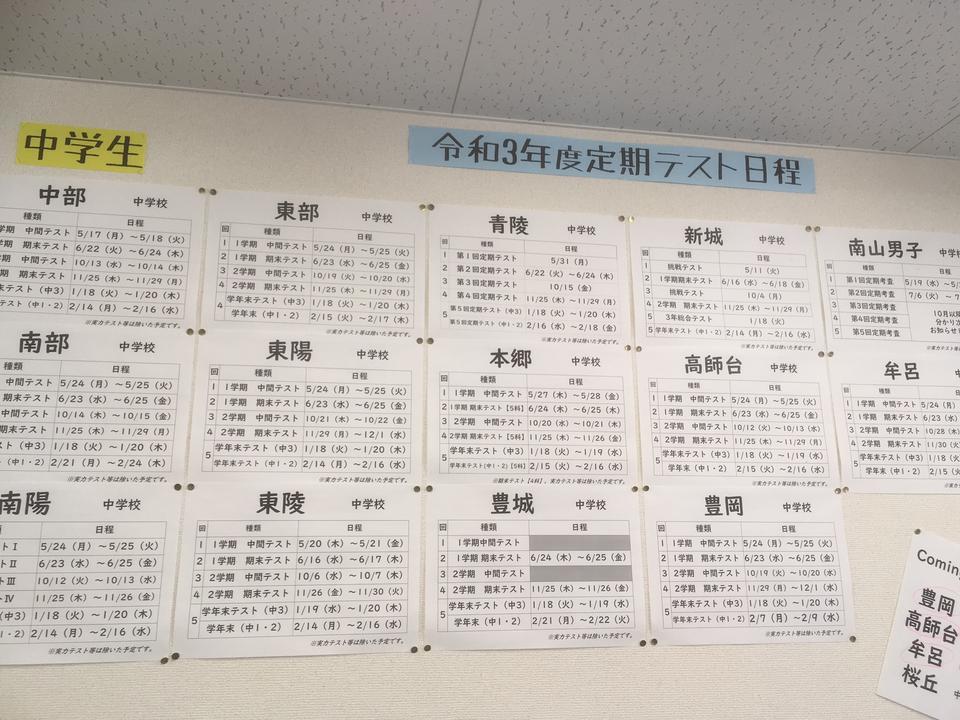 中学生
令和3年度定期テスト日程
中部 中学校
種類 日程
学期 中間テスト 5/17（月）～5/18（火）
学期 期末テスト 6/22（火）～6/24（木）
学期 中間テスト 10/13（水）～10/14（木）
学期 期末テスト 11/25（木）～11/29（月）
末テスト（中3） 1/18（火）～1/20（木）
テスト（中1・2） 2/14（月）～2/16（水）
※実力テスト等は除いた予定です。
東部 中学校
回 種類 日程
1 1学期 中間テスト 5/24（月）～5/25（火）
2 1学期 期末テスト 6/23（水）～6/25（金）
3 2学期 中間テスト 10/19（火）～10/20（水）
4 2学期 期末テスト 11/25（木）～11/29（月）
学年末テスト（中3） 1/18（火）～1/20（木）
学年末（中1・2） 2/15（火）～2/17（木）
※実力テスト等は除いた予定です。
青陵 中学校
回 種類 日程
1 第1回定期テスト 5/31（月）
2 第2回定期テスト 6/22（火）～6/24（木）
3 第3回定期テスト 10/15（金）
4 第4回定期テスト 11/25（木）～11/29（月）
第5回定期テスト（中3） 1/18（火）～1/20（木）
5 第5回定期テスト（中1・2） 2/16（水）～2/18（金）
※実力テスト等は除いた予定です。
新城 中学校
回 種類 日程
1 挑戦テスト 5/11（火）
2 1学期期末テスト 6/16（水）～6/18（金）
3 挑戦テスト 10/4（月）
4 2学期 期末テスト 11/25（木）～11/29（月）
3年総合テスト 1/18（火）
5 学年末テスト（中1・2） 2/14（月）～2/16（水）
※実力テスト等は除いた予定です。
南山男子 中学校
回 種類 日程
1 第1回定期考査 5/19（水）～5/
2 第2回定期考査 7/6（火）～
3 第3回定期考査 10月以降
4 第4回定期考査 分かり次
5 第5回定期考査 お知らせ
南部 中学校
種類 日程
中間テスト 5/24（月）～5/25（火）
期末テスト 6/23（水）～6/25（金）
中間テスト 10/14（木）～10/15（金）
期末テスト 11/25（木）～11/29（月）
スト（中3） 1/18（火）～1/20（木）
（中1・2） 2/21（月）～2/24（木）
※実力テスト等は除いた予定です。
東陽 中学校
回 種類 日程
1 1学期 中間テスト 5/24（月）～5/25（火）
2 1学期 期末テスト 6/23（水）～6/25（金）
3 2学期 中間テスト 10/21（木）～10/22（金）
4 2学期 期末テスト 11/29（月）～12/1（水）
5 学年末テスト（中3） 1/18（火）～1/20（木）
学年末テスト（中1・2） 2/14（月）～2/16（水）
※実力テスト等は除いた予定です。
本郷 中学校
回 種類 日程
1 1学期 中間テスト 5/27（木）～5/28（金）
2 1学期 期末テスト【5科】 6/24（木）～6/25（木）
3 2学期 中間テスト 10/20（水）～10/21（木）
4 2学期 期末テスト【5科】 11/25（木）～11/26（金）
5 学年末テスト（中3） 1/18（火）～1/19（水）
学年末テスト（中1・2）【5科】 2/15（火）～2/16（水）
※期末テスト【4科】、実力テスト等は除いた予定です。
高師台 中学校
回 種類 日程
1 1学期 中間テスト 5/24（月）～5/25（火）
2 1学期 期末テスト 6/23（水）～6/25（金）
3 2学期 中間テスト 10/12（火）～10/13（水）
4 2学期 期末テスト 11/25（木）～11/29（月）
5 学年末テスト（中3） 1/18（火）～1/19（水）
学年末（中1・2） 2/15（火）～2/16（水）
※実力テスト等は除いた予定です。
牟呂 中学校
回 種類 日程
1 1学期 中間テスト 5/24（月）
2 1学期 期末テスト 6/23（水）
3 2学期 中間テスト 10/28（木）
4 2学期 期末テスト 11/30（火）
5 学年末テスト（中3） 1/18（火）
学年末（中1・2） 2/15（火）
南陽 中学校
類 日程
ストⅠ 5/24（月）～5/25（火）
ストⅡ 6/23（水）～6/25（金）
ストⅢ 10/12（火）～10/13（水）
ストⅣ 11/25（木）～11/26（金）
（中3） 1/18（火）～1/20（木）
（中1・2） 2/14（月）～2/16（水）
※実力テスト等は除いた予定です。
東陵 中学校
回 種類 日程
1 1学期 中間テスト 5/20（木）～5/21（金）
2 1学期 期末テスト 6/16（水）～6/17（木）
3 2学期 中間テスト 10/6（水）～10/7（木）
4 2学期 期末テスト 11/26（金）～11/30（火）
5 学年末テスト（中3） 1/19（水）～1/20（木）
学年末（中1・2） 2/14（月）～2/16（水）
※実力テスト等は除いた予定です。
豊城 中学校
回 種類 日程
1 1学期中間テスト
2 1学期 期末テスト 6/24（木）～6/25（金）
3 2学期 中間テスト
4 2学期 期末テスト 11/25（木）～11/26（金）
5 学年末テスト（中3） 1/18（火）～1/19（水）
学年末（中1・2） 2/21（月）～2/22（火）
※実力テスト等は除いた予定です。
豊岡 中学校
回 種類 日程
1 1学期 中間テスト 5/24（月）～5/25（火）
2 1学期 期末テスト 6/23（水）～6/25（金）
3 2学期 中間テスト 10/19（火）～10/20（水）
4 2学期 期末テスト 11/29（月）～12/1（水）
5 学年末テスト（中3） 1/18（火）～1/20（木）
学年末テスト（中1・2） 2/7（月）～2/9（水）
※実力テスト等は除いた予定です。
Coming
豊岡
高師台
牟呂
桜丘 中